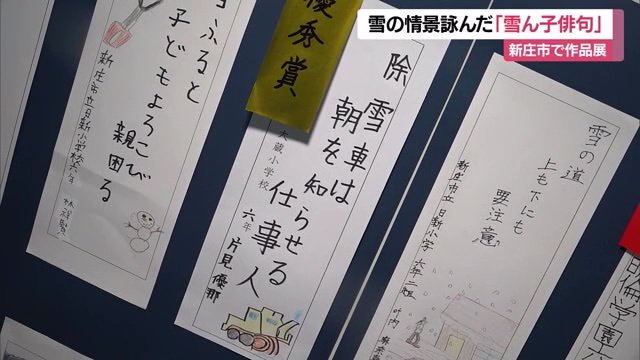 雪の情景詠んだ「雪ん子俳句」
新庄市で作品展
優秀賞
除雪車は
朝を知らせる
仕事人
大蔵小学校
六年 片見優那
雪の道
上も下にも
要注意
新庄市立日新小学 六年二組 叶内
ふると
子どもよろこび
親困る
新庄市立日新小学校六年